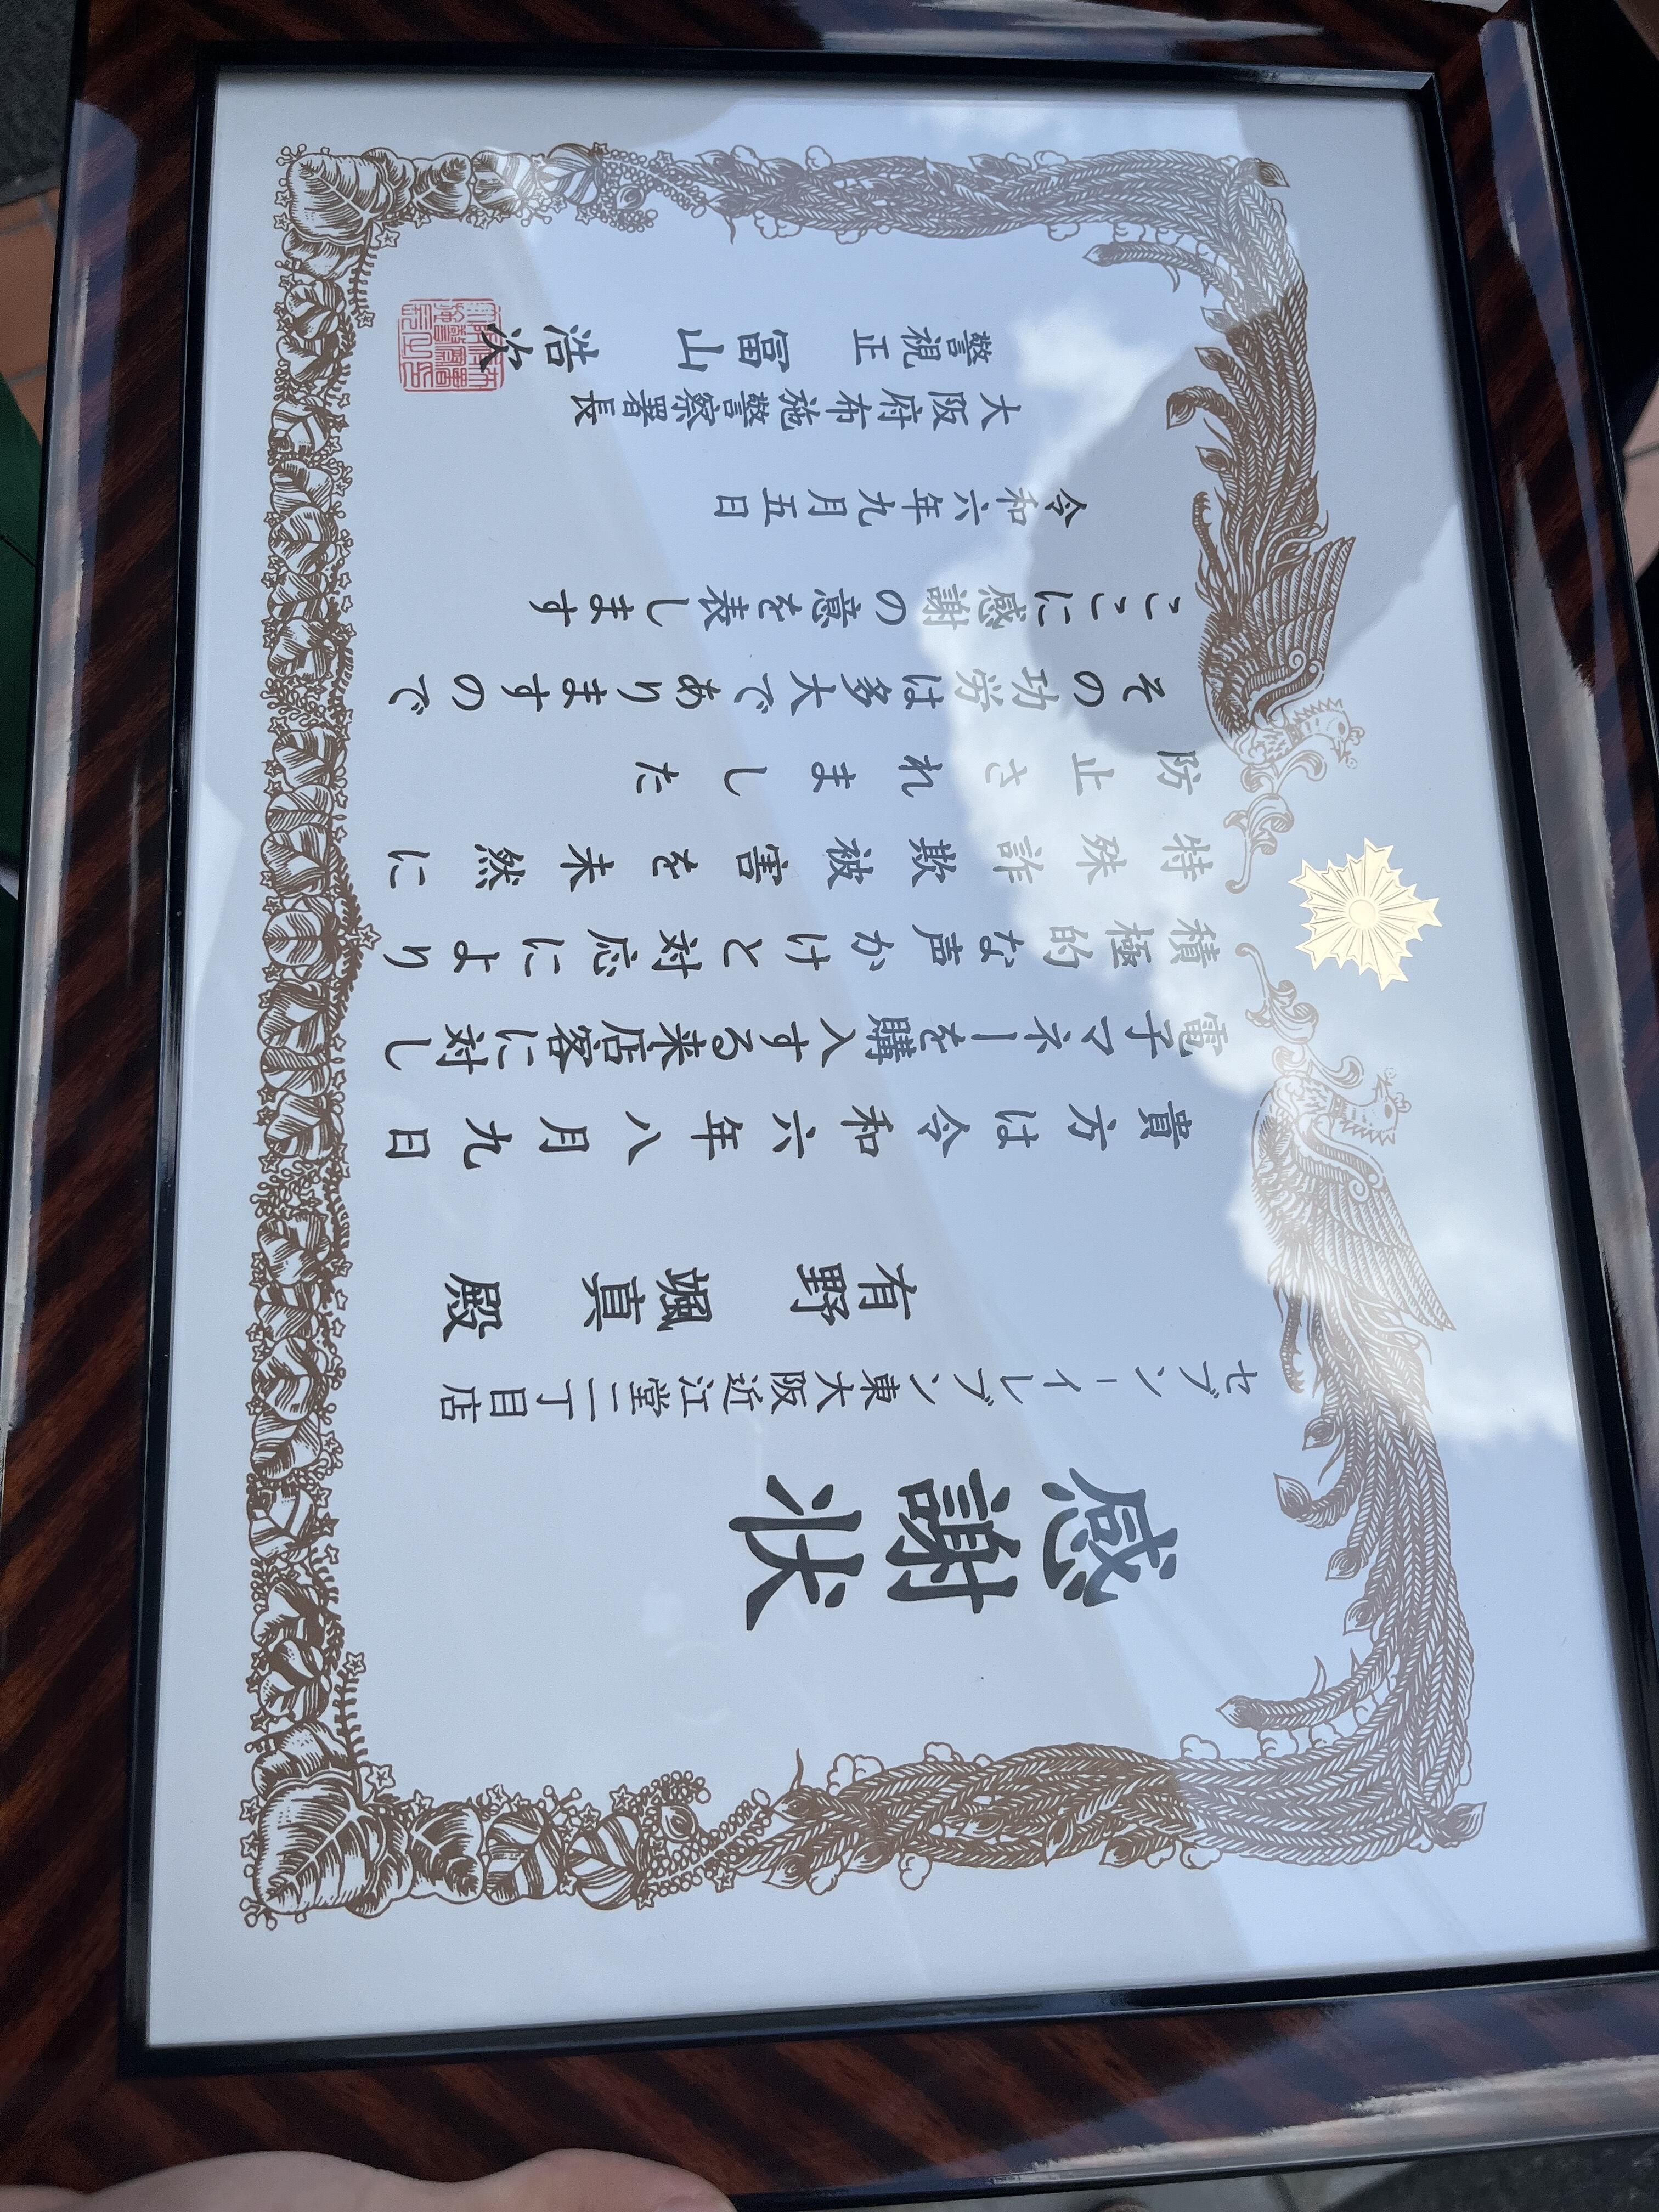 感謝状
セブン-イレブン東大阪近江堂一丁目店
有野 颯真 殿
貴方は令和六年八月九日
電子マネーを購入する来店客に対し
積極的な声かけと対応により
特殊詐欺被害を未然に
防止されました
その功労は多大でありますので
ここに感謝の意を表します
令和六年九月五日
大阪府布施警察署長
警視正 冨山 浩次